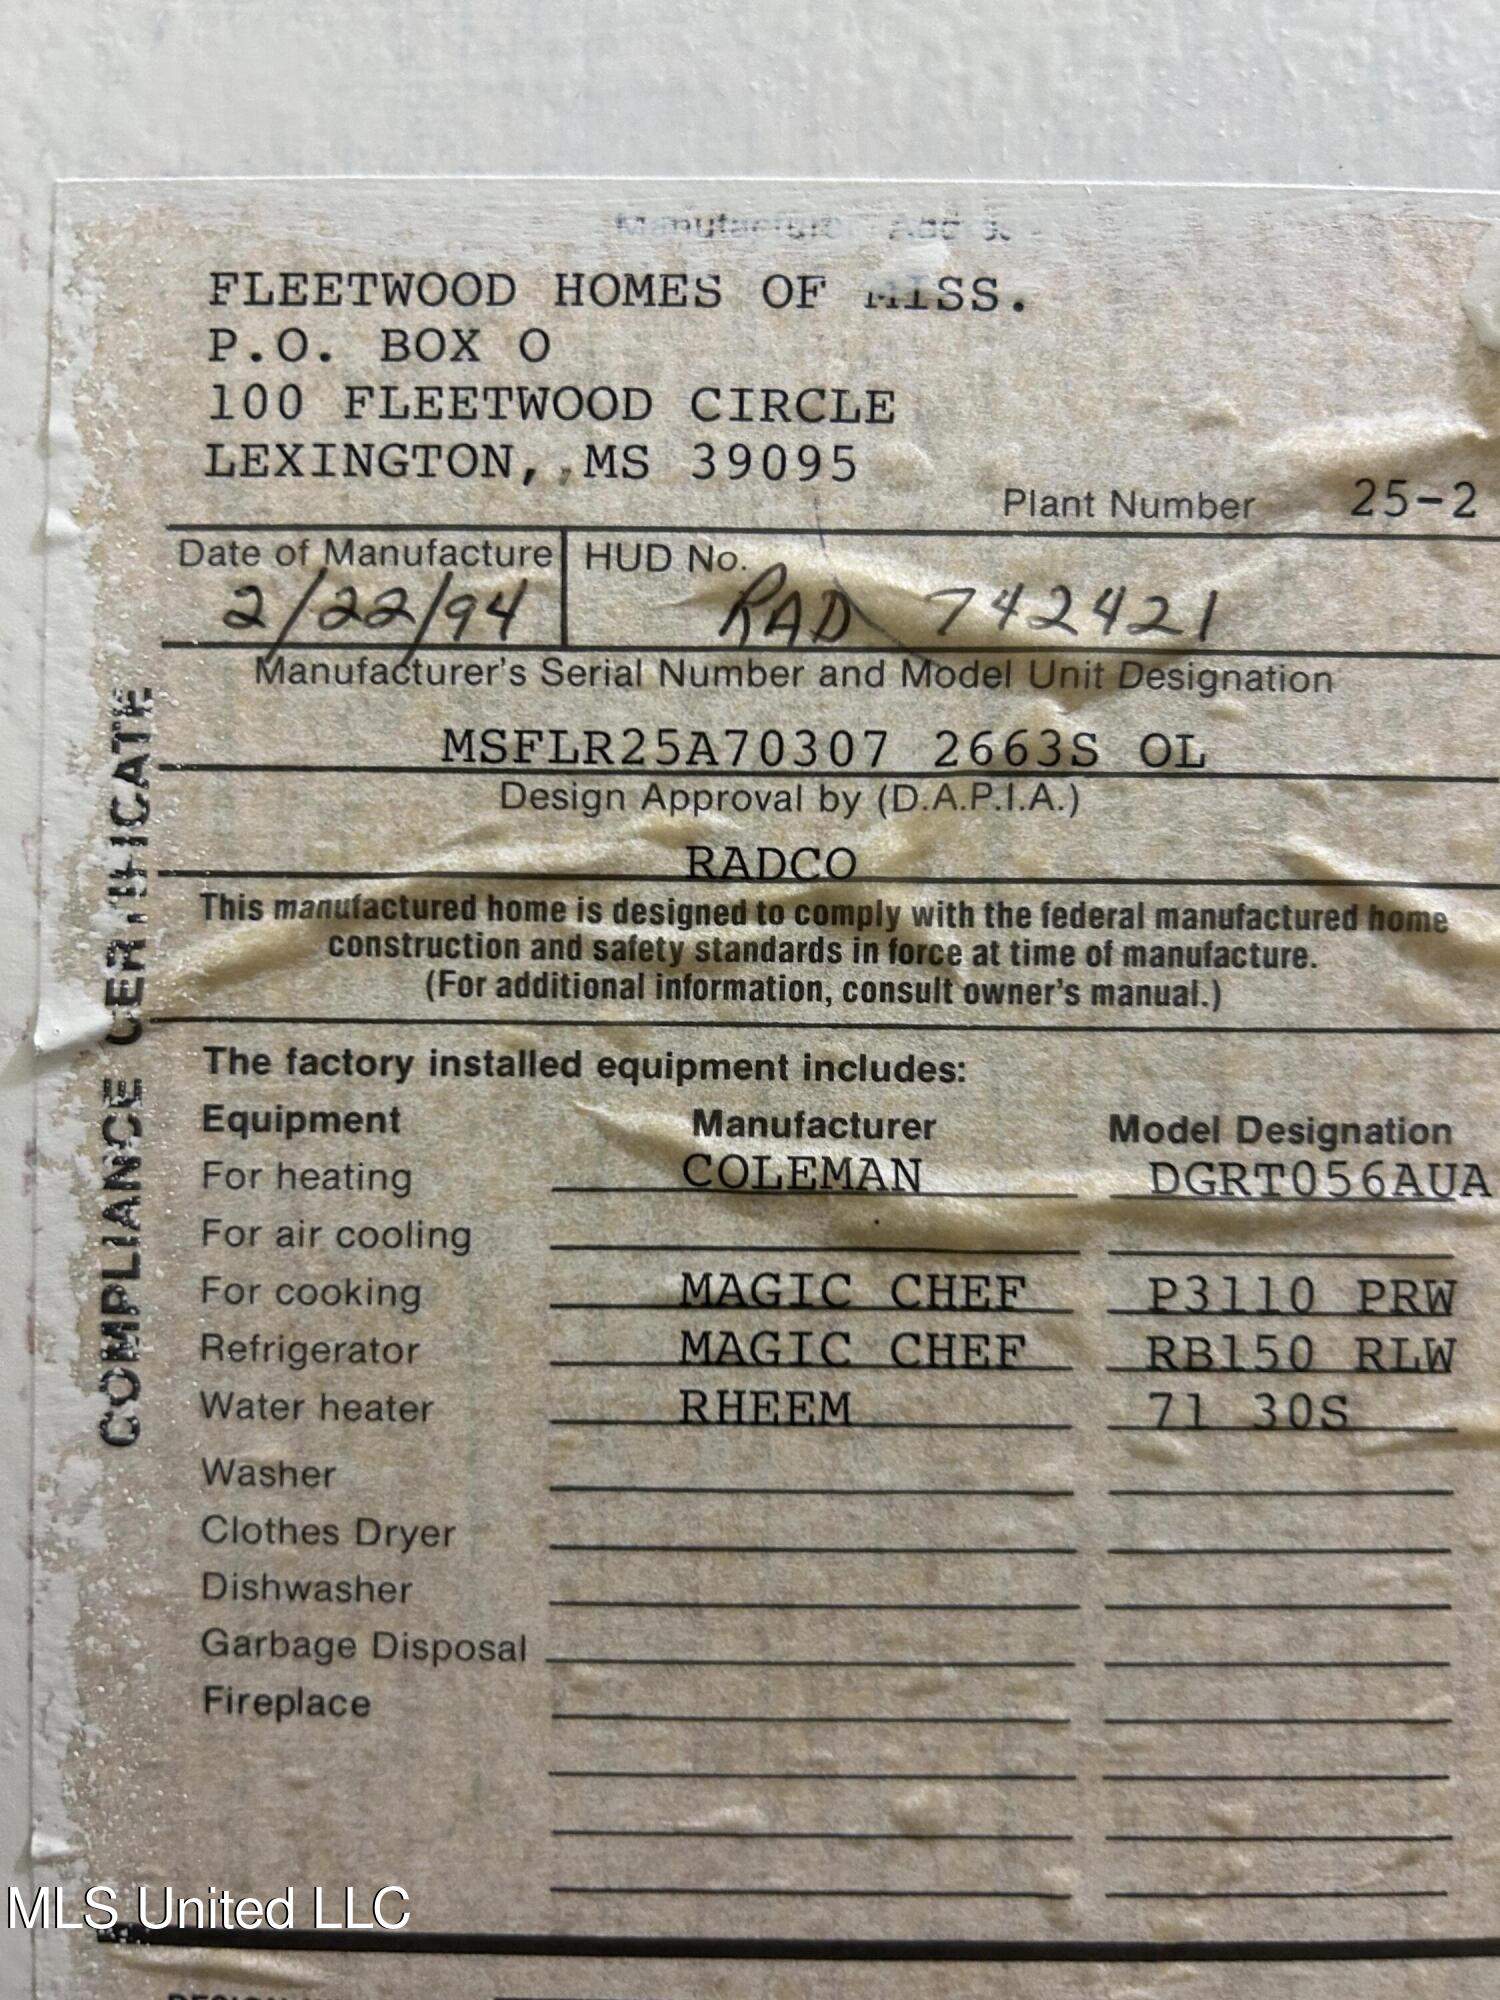 Manufacturer Address
FLEETWOOD HOMES OF MISS.
P.O. BOX O
100 FLEETWOOD CIRCLE
LEXINGTON, MS 39095
Plant Number 25-2
Date of Manufacture HUD No.
2/22/94 RAD 742421
Manufacturer's Serial Number and Model Unit Designation
MSFLR25A70307 2663S OL
Design Approval by (D.A.P.I.A.)
RADCO
This manufactured home is designed to comply with the federal manufactured home
construction and safety standards in force at time of manufacture.
(For additional information, consult owner's manual.)
COMPLIANCE CERTIFICATE
The factory installed equipment includes:
Equipment Manufacturer Model Designation
For heating COLEMAN DGRT056AUA
For air cooling
For cooking MAGIC CHEF P3110 PRW
Refrigerator MAGIC CHEF RB150 RLW
Water heater RHEEM 71 30S
Washer
Clothes Dryer
Dishwasher
Garbage Disposal
Fireplace
MLS United LLC